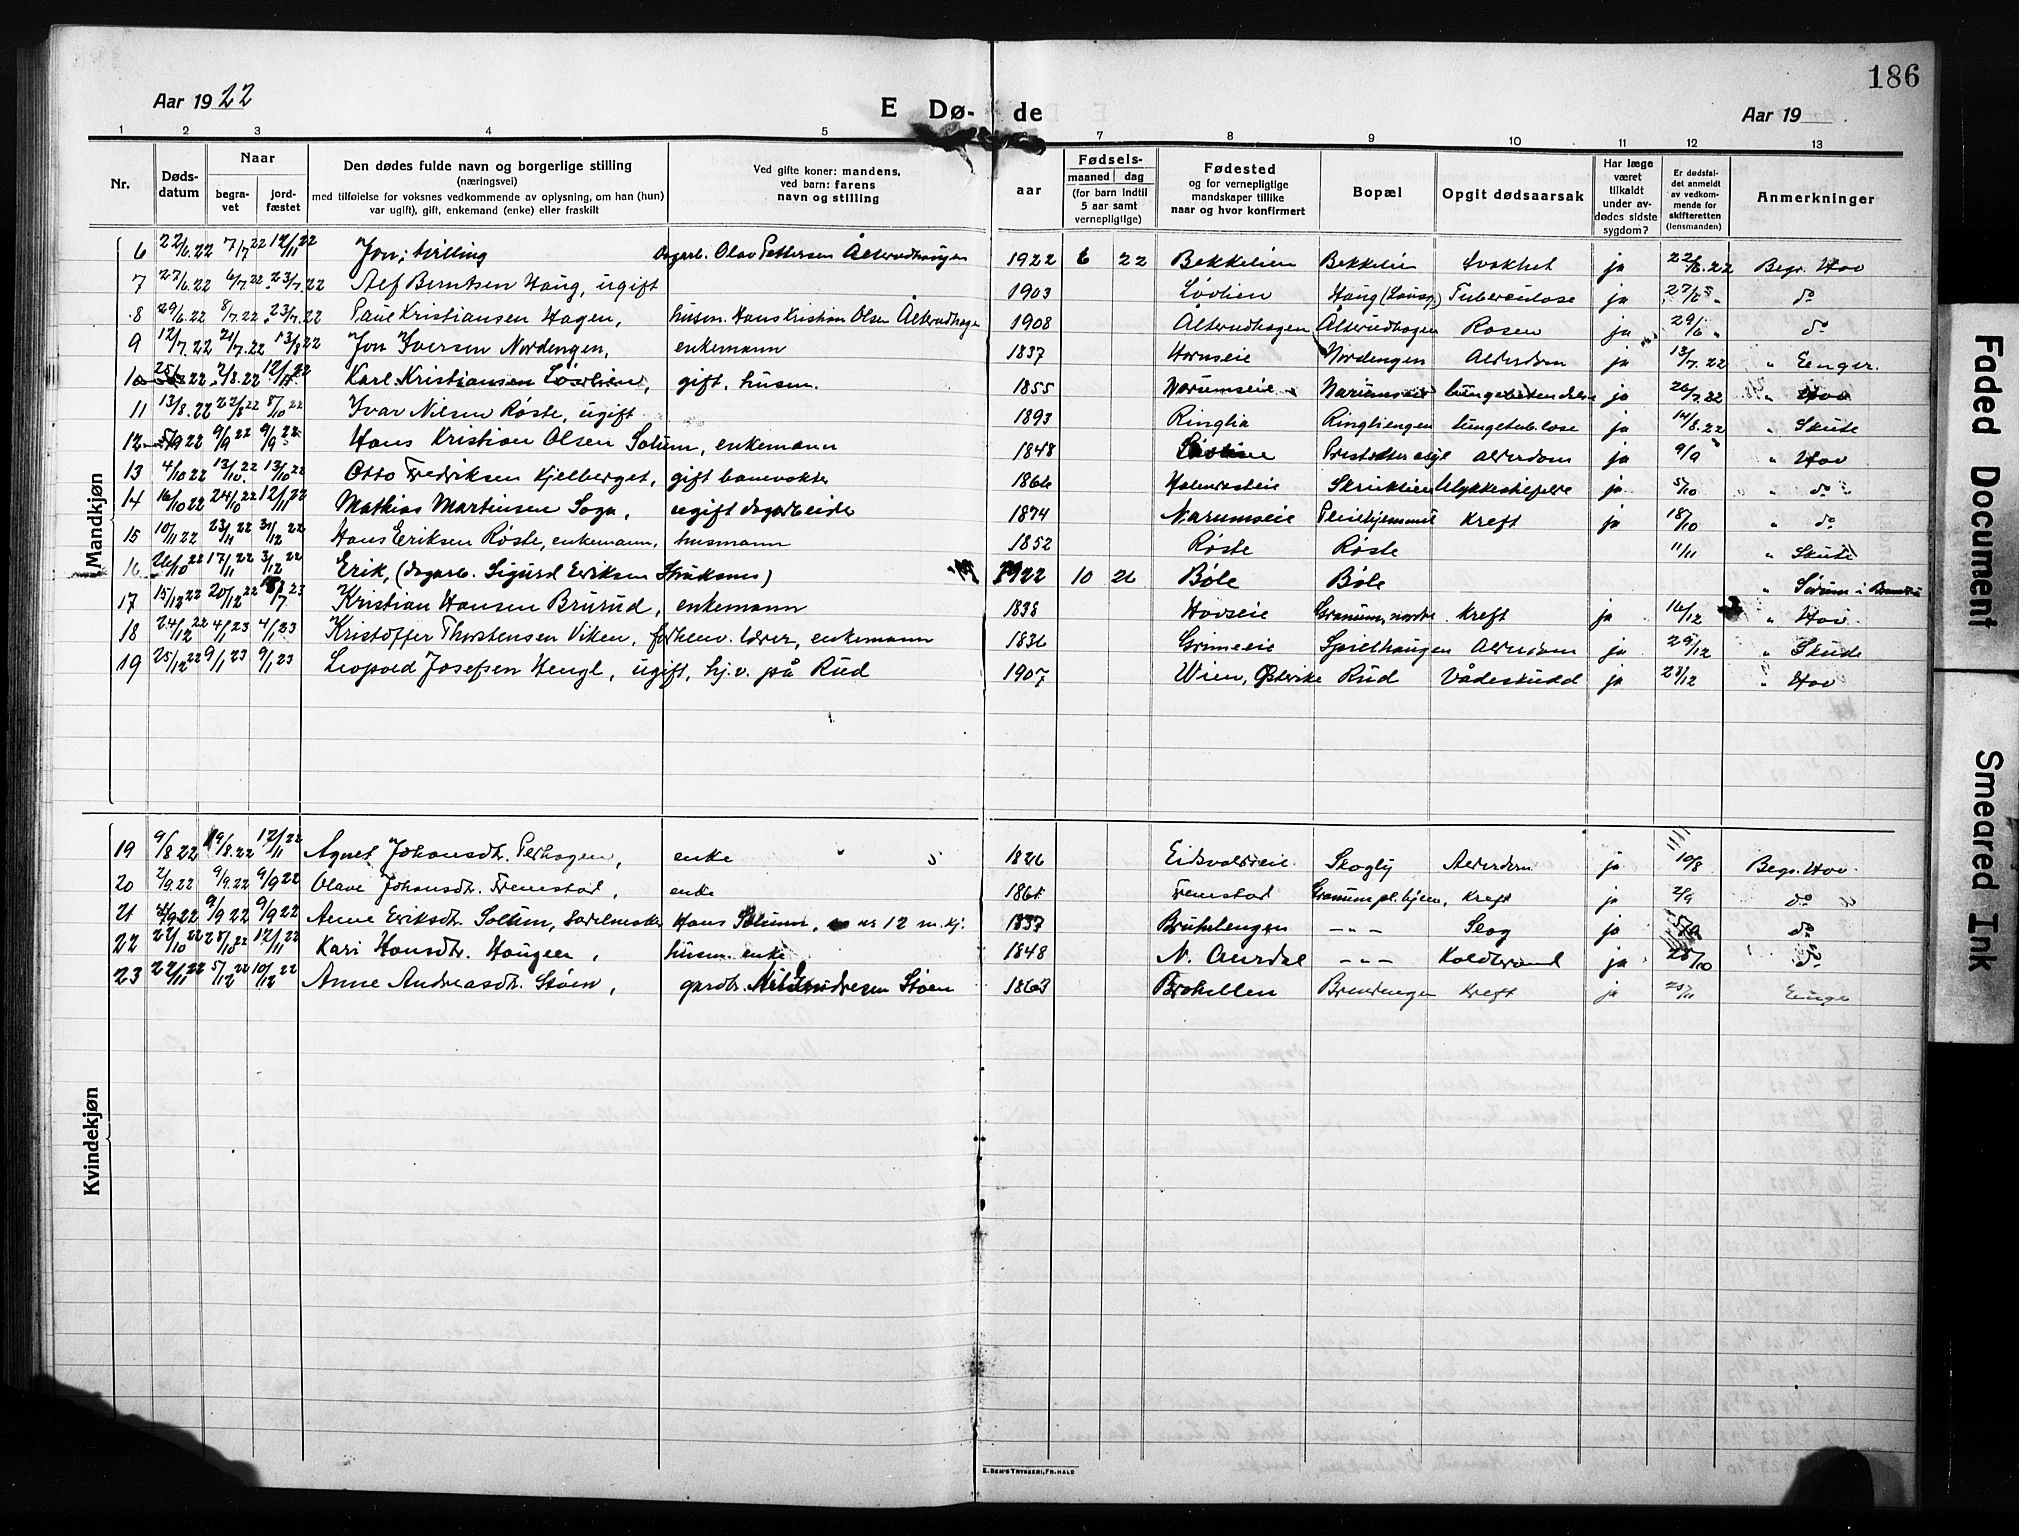 186
Aar 1922
E Dø-
de
Aar 19
1 2 3 4 5 7 8 9 10 11 12 13
Nr.
Døds-
datum
Naar
begra-
vet
jord-
fæstet
Den dødes fulde navn og borgerlige stilling
(næringsvei)
med tilføielse for voksnes vedkommende av oplysning, om han (hun)
var ugift), gift, enkemand (enke) eller fraskilt
Ved gifte koner: mandens,
ved barn: farens
navn og stilling
aar
Fødsels-
maaned dag
(for barn indtil
5 aar samt
vernepligtige)
Fødested
og for vernepligtige
mandskaper tillike
naar og hvor konfirmert
Bopæl
Opgit dødsaarsak
Har læge
været
tilkaldt
under av-
dødes sidste
sygdom?
Er dødsfal-
det anmeldt
av vedkom-
mende for
skifteretten
(lensmanden)
Anmerkninger
Mandkjøn
6 22/6.22 7/7 22 12/11 22 Jon, tvilling Dagarb. Olav Pettersen Ålterudhaugen 1922 6 22 Bekkelien Bekkelien Svakhet ja 22/6.22 Begr. Hov
7 27/6.22 6/7.22 23/7.22 Alf Berntsen Haug, ugift 1903 Løvlien Haug Tuberculose ja do
8 29/6.22 8/7.22 23/7.22 Paul Kristiansen Hagen, husm. Hans Kristian Olsen Ålterudhagen 1908 Ålterudhagen Ålterudhagen Rosen ja 29/6 " do
9 12/7.22 21/7.22 13/8 22 Jon Iversen Nordengen, enkemann 1837 Hornseie Nordengen Alderdom ja 13/7.22 " Enger.
10 2/8.22 12/11 22 Karl Kristiansen Løvlien, gift, husm. 1855 Narumseie Narumseie lungebetendelse ja 26/7.22 " Hov
11 13/8.22 22/8 22 8/10 22 Ivar Nilsen Røste, ugift 1893 Ringlia Ringliengen ja 14/8.22 " Skute
12 5/9 22 9/9 22 9/9 22 Hans Kristian Olsen Solum, enkemann 1848 Alderdom ja 9/9 " Hov
13 4/10 22 13/10 22 13/10 22 Otto Fredriksen Kjelberget, gift banevokter 1866 Skruklien Ulykkestilfelle ja 5/10 " do
14 16/10 22 24/10 22 12/11 22 Mathias Martinsen Soga, ugift dagarbeider 1874 Narumseie Pleiehjemmet Kreft ja 18/10 " do
15 10/11 22 23/11 22 31/12 22 Hans Eriksen Røste, enkemann, husmann 1852 Røste Røste 11/11 " Skute
16 26/10 22 17/11 22 3/12 22 Erik, (dagarb. Sigurd Eriksen Struksnes) 1922 10 26 Bøle Bøle " Sørum i
17 15/12 22 20/12 22 Kristian Hansen Brurud, enkemann 1838 Hovseie Granum, nordre Kreft ja 16/12 " Hov
18 24/12 22 4/1 23 4/1 23 Kristoffer Thorstensen Viken, forhenv. lærer, enkemann 1836 Grimeeie Spielhaugen Alderdom ja 29/12 " Skude
19 25/12 22 9/1 23 9/1 23 Leopold Josefsen Hengl, ugift, hj.v. på Rud 1907 Wien, Østerike Rud Vådeskudd ja 28/12 " Hov
Kvindekjøn
19 9/8 22 19/8.22 12/11 22 Agnet Johansdtr. Perhagen, enke 1826 Eidsvolseie Skogly Alderdom ja 10/8 Begr. Hov.
20 2/9.22 9/9.22 9/9 22 Olave Johansdtr. Fremstad, enke 1861 Fremstad Granum pl.hjem, Kreft ja 2/9 do
21 4/9 22 9/9 22 9/9 22 Anne Eriksdtr. Solum, Hans Solum, nr 12 m.kj. 1837 Bruhlengen -"- Slag ja 5/9 do
22 22/10 22 28/10 22 12/11 22 Kari Hansdtr. Haugen, husm. enke 1848 N. Aurdal -"- Koldbrand ja 25/10 do
23 22/11 22 5/12 22 10/12 22 Anne Andreasdtr. Støen, gardbr. Nils Støen 1863 Brendengen Kreft ja " Enge
E. SEM'S TRYKKERI, FR.HALD
Faded Document
Smeared Ink